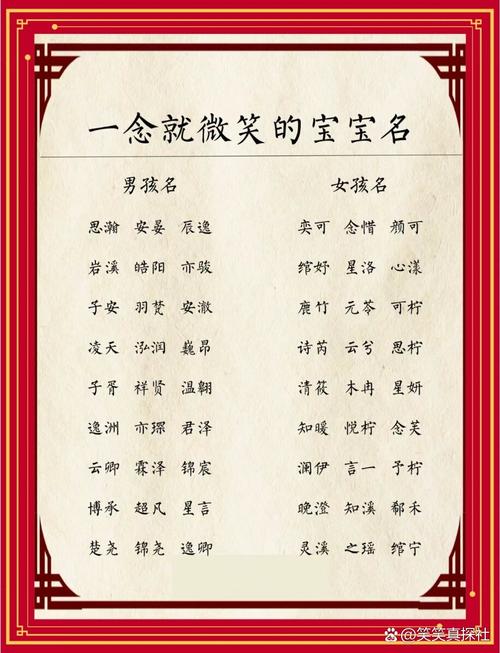 一念就微笑的宝宝名
男孩名 女孩名
思瀚 安晏 辰逸 奕可 念惜 颜可
岩溪 皓阳 亦骏 绾妤 星洛 心漾
子安 羽梵 安澈 鹿竹 元苓 可柠
凌天 泓润 巍昂 诗芮 云兮 思柠
子胥 祥贤 温翱 清筱 木冉 星妍
逸洲 亦琛 君泽 知暖 悦柠 念芙
云卿 霖泽 锦宸 澜伊 言一 予柠
博承 超凡 星言 晚澄 知溪 郗禾
楚尧 锦尧 逸卿 灵溪 之瑶 绾宁
笑笑真探社